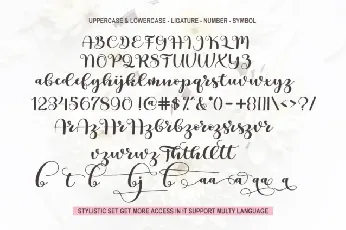 UPPERCASE & LOWERCASE - LIGATURE - NUMBER - SYMBOL
ABCDEFGHIJKLM
NOPQRSTUVWXYZ
abcdefghijklmnopqrstuvwxyz
1234567890 !@#$%^&*()-+{}[]\<>?/
ArAzHrHzbrbzorozsrszvr
vzwrwzThthlltt
STYLISTIC SET GET MORE ACCESS IN IT SUPPORT MULTY LANGUAGE